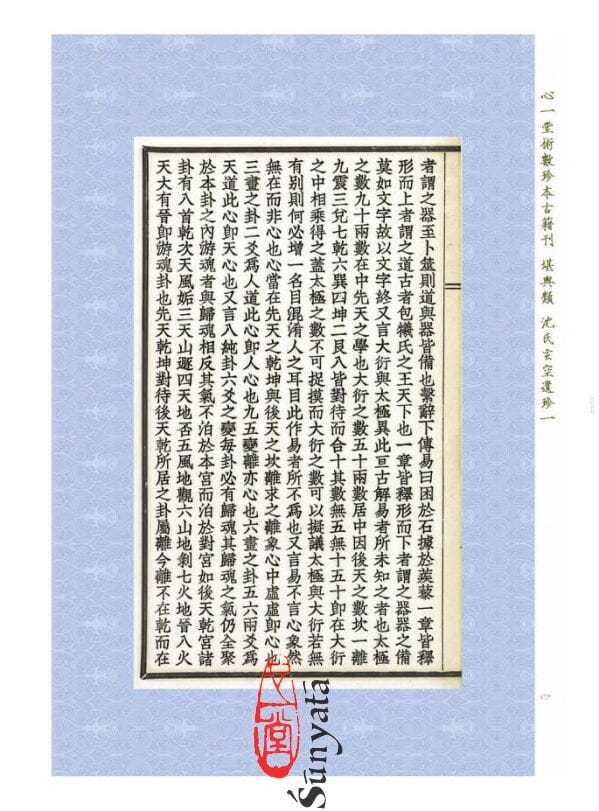 心一堂術數珍本古籍刊 堪輿類 沈氏玄空遺珍一
者謂之器至卜筮則道與器皆備也繫辭下傳易曰困於石據於蒺藜一章皆釋
形而上者謂之道古者包犧氏之王天下也一章皆釋形而下者謂之器器之備
莫如文字故以文字終又言大衍與太極異此亘古解易者所未知之者也太極
之數九十兩數在中先天之學也大衍之數五十兩數居中因後天之數坎一離
九震三兌七乾六巽四坤二艮八皆對待而合十其數無五無十五十即在大衍
之中相乘得之蓋太極之數不可捉摸而大衍之數可以擬議太極與大衍若無
有别則何必增一名目混淆人之耳目此作易者所不為也又言易不言心象然
無在而非心也心當在先天之乾坤與後天之坎離求之離象心中虛虛即心也
三畫之卦二爻為人道此心即人心也九五變離亦心也六畫之卦五六兩爻為
天道此心即天心也又言八純卦六爻之變每卦必有歸魂其歸魂之氣仍全聚
於本卦之內游魂者與歸魂相反其氣不泊於本宮而泊於對宮如後天乾宮諸
卦有八首乾次天風姤三天山遯四天地否五風地觀六山地剝七火地晉八火
天大有晉即游魂卦也先天乾坤對待後天乾所居之卦屬離今離不在乾而在
心一堂
Śūnyatā